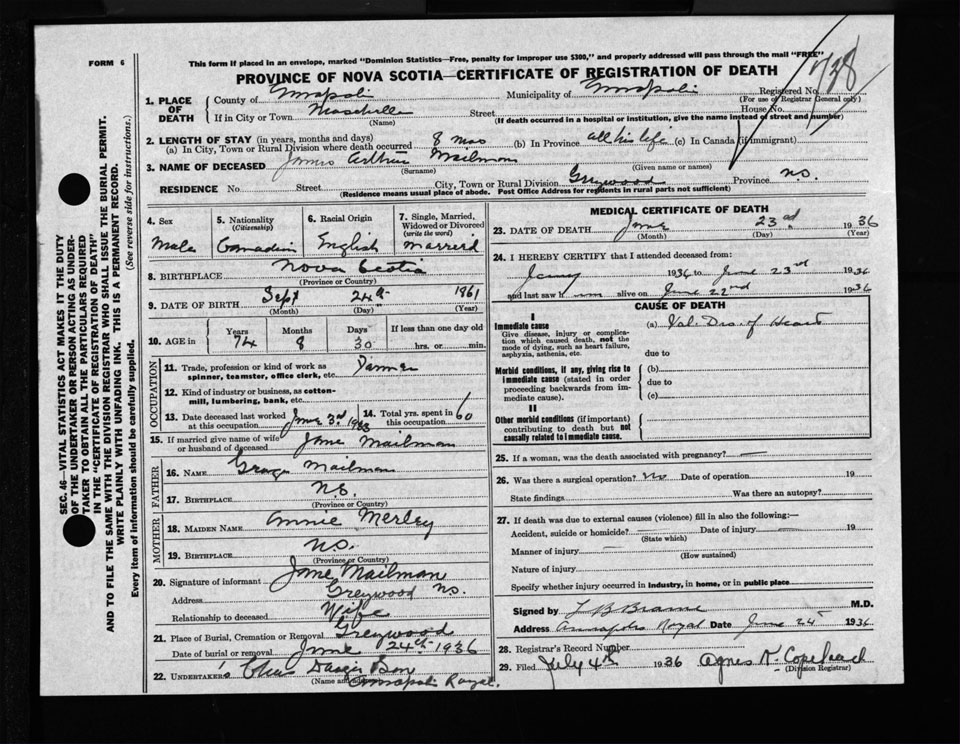 FORM 6
This form if placed in an envelope, marked "Dominion Statistics—Free, penalty for improper use $300," and properly addressed will pass through the mail "FREE"
PROVINCE OF NOVA SCOTIA—CERTIFICATE OF REGISTRATION OF DEATH
1. PLACE OF DEATH
County of Annapolis Municipality of Annapolis Registered No.
(For use of Registrar General only)
If in City or Town Street House No.
(Name) (If death occurred in a hospital or institution, give the name instead of street and number)
2. LENGTH OF STAY (in years, months and days)
(a) In City, Town or Rural Division where death occurred 8 mos (b) In Province all his life (c) In Canada (if immigrant)
3. NAME OF DECEASED James Arthur Mailman
(Surname) (Given name or names)
RESIDENCE No. Street City, Town or Rural Division Greywood Province N.S.
(Residence means usual place of abode. Post Office Address for residents in rural parts not sufficient)
4. Sex
Male
5. Nationality
(Citizenship)
Canadian
6. Racial Origin
English
7. Single, Married, Widowed or Divorced
(write the word)
Married
8. BIRTHPLACE Nova Scotia
(Province or Country)
9. DATE OF BIRTH Sept 24th 1961
(Month) (Day) (Year)
10. AGE in
Years Months Days If less than one day old
74 8 30 hrs. or min.
OCCUPATION
11. Trade, profession or kind of work as spinner, teamster, office clerk, etc. Farmer
12. Kind of industry or business, as cotton-mill, lumbering, bank, etc.
13. Date deceased last worked at this occupation June 3rd
14. Total yrs. spent in this occupation 60
15. If married give name of wife or husband of deceased Jane Mailman
FATHER
16. NAME George Mailman
17. BIRTHPLACE N.S.
(Province or Country)
MOTHER
18. MAIDEN NAME Annie Merley
19. BIRTHPLACE N.S.
(Province or Country)
20. Signature of informant Jane Mailman
Address Greywood N.S.
Relationship to deceased Wife
21. Place of Burial, Cremation or Removal Greywood
Date of burial or removal June 24th 1936
22. UNDERTAKER'S
(Name and
Annapolis Royal.
MEDICAL CERTIFICATE OF DEATH
23. DATE OF DEATH June 23rd 1936
(Month) (Day) (Year)
24. I HEREBY CERTIFY that I attended deceased from:
1936 to June 23rd 1936
and last saw him alive on June 22nd 1936
CAUSE OF DEATH
I
Immediate cause
Give disease, injury or complication which caused death, not the mode of dying, such as heart failure, asphyxia, asthenia, etc.
(a) Val. Dis. of Heart
due to
Morbid conditions, if any, giving rise to immediate cause (stated in order proceeding backwards from immediate cause).
(b)
due to
(c)
II
Other morbid conditions (if important) contributing to death but not causally related to immediate cause.
25. If a woman, was the death associated with pregnancy? —
26. Was there a surgical operation? No Date of operation 19
State findings Was there an autopsy?
27. If death was due to external causes (violence) fill in also the following:—
Accident, suicide or homicide? — Date of injury — 19
(State which)
Manner of injury —
(How sustained)
Nature of injury
Specify whether injury occurred in industry, in home, or in public place
Signed by M.D.
Address Annapolis Royal Date June 24 1936
28. Registrar's Record Number
29. Filed July 4th 1936 Agnes K. Copeland
(Division Registrar)
SEC. 46—VITAL STATISTICS ACT MAKES IT THE DUTY
OF THE UNDERTAKER OR PERSON ACTING AS UNDER-
TAKER TO OBTAIN ALL THE PARTICULARS REQUIRED
IN THE "CERTIFICATE OF REGISTRATION OF DEATH"
AND TO FILE THE SAME WITH THE DIVISION REGISTRAR WHO SHALL ISSUE THE BURIAL PERMIT.
WRITE PLAINLY WITH UNFADING INK. THIS IS A PERMANENT RECORD.
Every item of information should be carefully supplied. (See reverse side for instructions.)